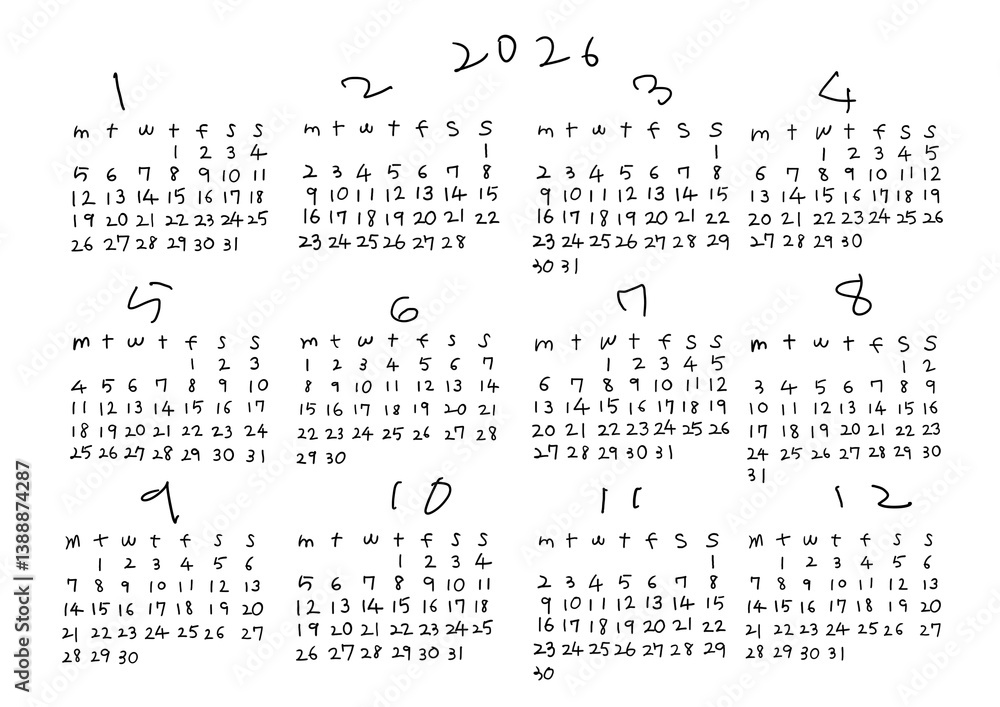 2026
1
m t w t f s s
1 2 3 4
5 6 7 8 9 10 11
12 13 14 15 16 17 18
19 20 21 22 23 24 25
26 27 28 29 30 31
2
m t w t f s s
1
2 3 4 5 6 7 8
9 10 11 12 13 14 15
16 17 18 19 20 21 22
23 24 25 26 27 28
3
m t w t f s s
1
2 3 4 5 6 7 8
9 10 11 12 13 14 15
16 17 18 19 20 21 22
23 24 25 26 27 28 29
30 31
4
m t w t f s s
1 2 3 4 5
6 7 8 9 10 11 12
13 14 15 16 17 18 19
20 21 22 23 24 25 26
27 28 29 30
5
m t w t f s s
1 2 3
4 5 6 7 8 9 10
11 12 13 14 15 16 17
18 19 20 21 22 23 24
25 26 27 28 29 30 31
6
m t w t f s s
1 2 3 4 5 6 7
8 9 10 11 12 13 14
15 16 17 18 19 20 21
22 23 24 25 26 27 28
29 30
7
m t w t f s s
1 2 3 4 5
6 7 8 9 10 11 12
13 14 15 16 17 18 19
20 21 22 23 24 25 26
27 28 29 30 31
8
m t w t f s s
1 2
3 4 5 6 7 8 9
10 11 12 13 14 15 16
17 18 19 20 21 22 23
24 25 26 27 28 29 30
31
9
m t w t f s s
1 2 3 4 5 6
7 8 9 10 11 12 13
14 15 16 17 18 19 20
21 22 23 24 25 26 27
28 29 30
10
m t w t f s s
1 2 3 4
5 6 7 8 9 10 11
12 13 14 15 16 17 18
19 20 21 22 23 24 25
26 27 28 29 30 31
11
m t w t f s s
1
2 3 4 5 6 7 8
9 10 11 12 13 14 15
16 17 18 19 20 21 22
23 24 25 26 27 28 29
30
12
m t w t f s s
1 2 3 4 5 6
7 8 9 10 11 12 13
14 15 16 17 18 19 20
21 22 23 24 25 26 27
28 29 30 31
Adobe Stock | #1388874287
Adobe Stock